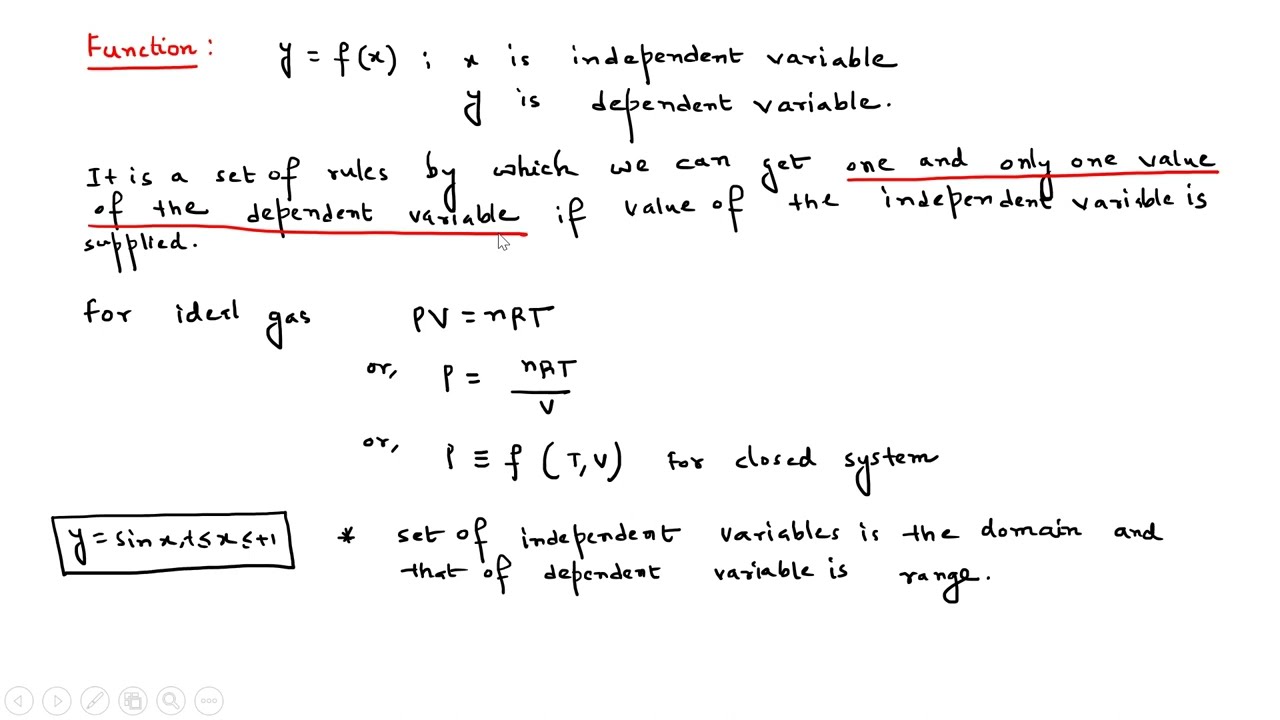 Function : y = f(x) ; x is independent variable
y is dependent variable.
It is a set of rules by which we can get one and only one value
of the dependent variable if value of the independent variable is
supplied.
for ideal gas PV = nRT
or, P = nRT / V
or, P ≡ f (T, V) for closed system
y = sin x, ≤ x ≤ +1 * set of independent variables is the domain and
that of dependent variable is range.